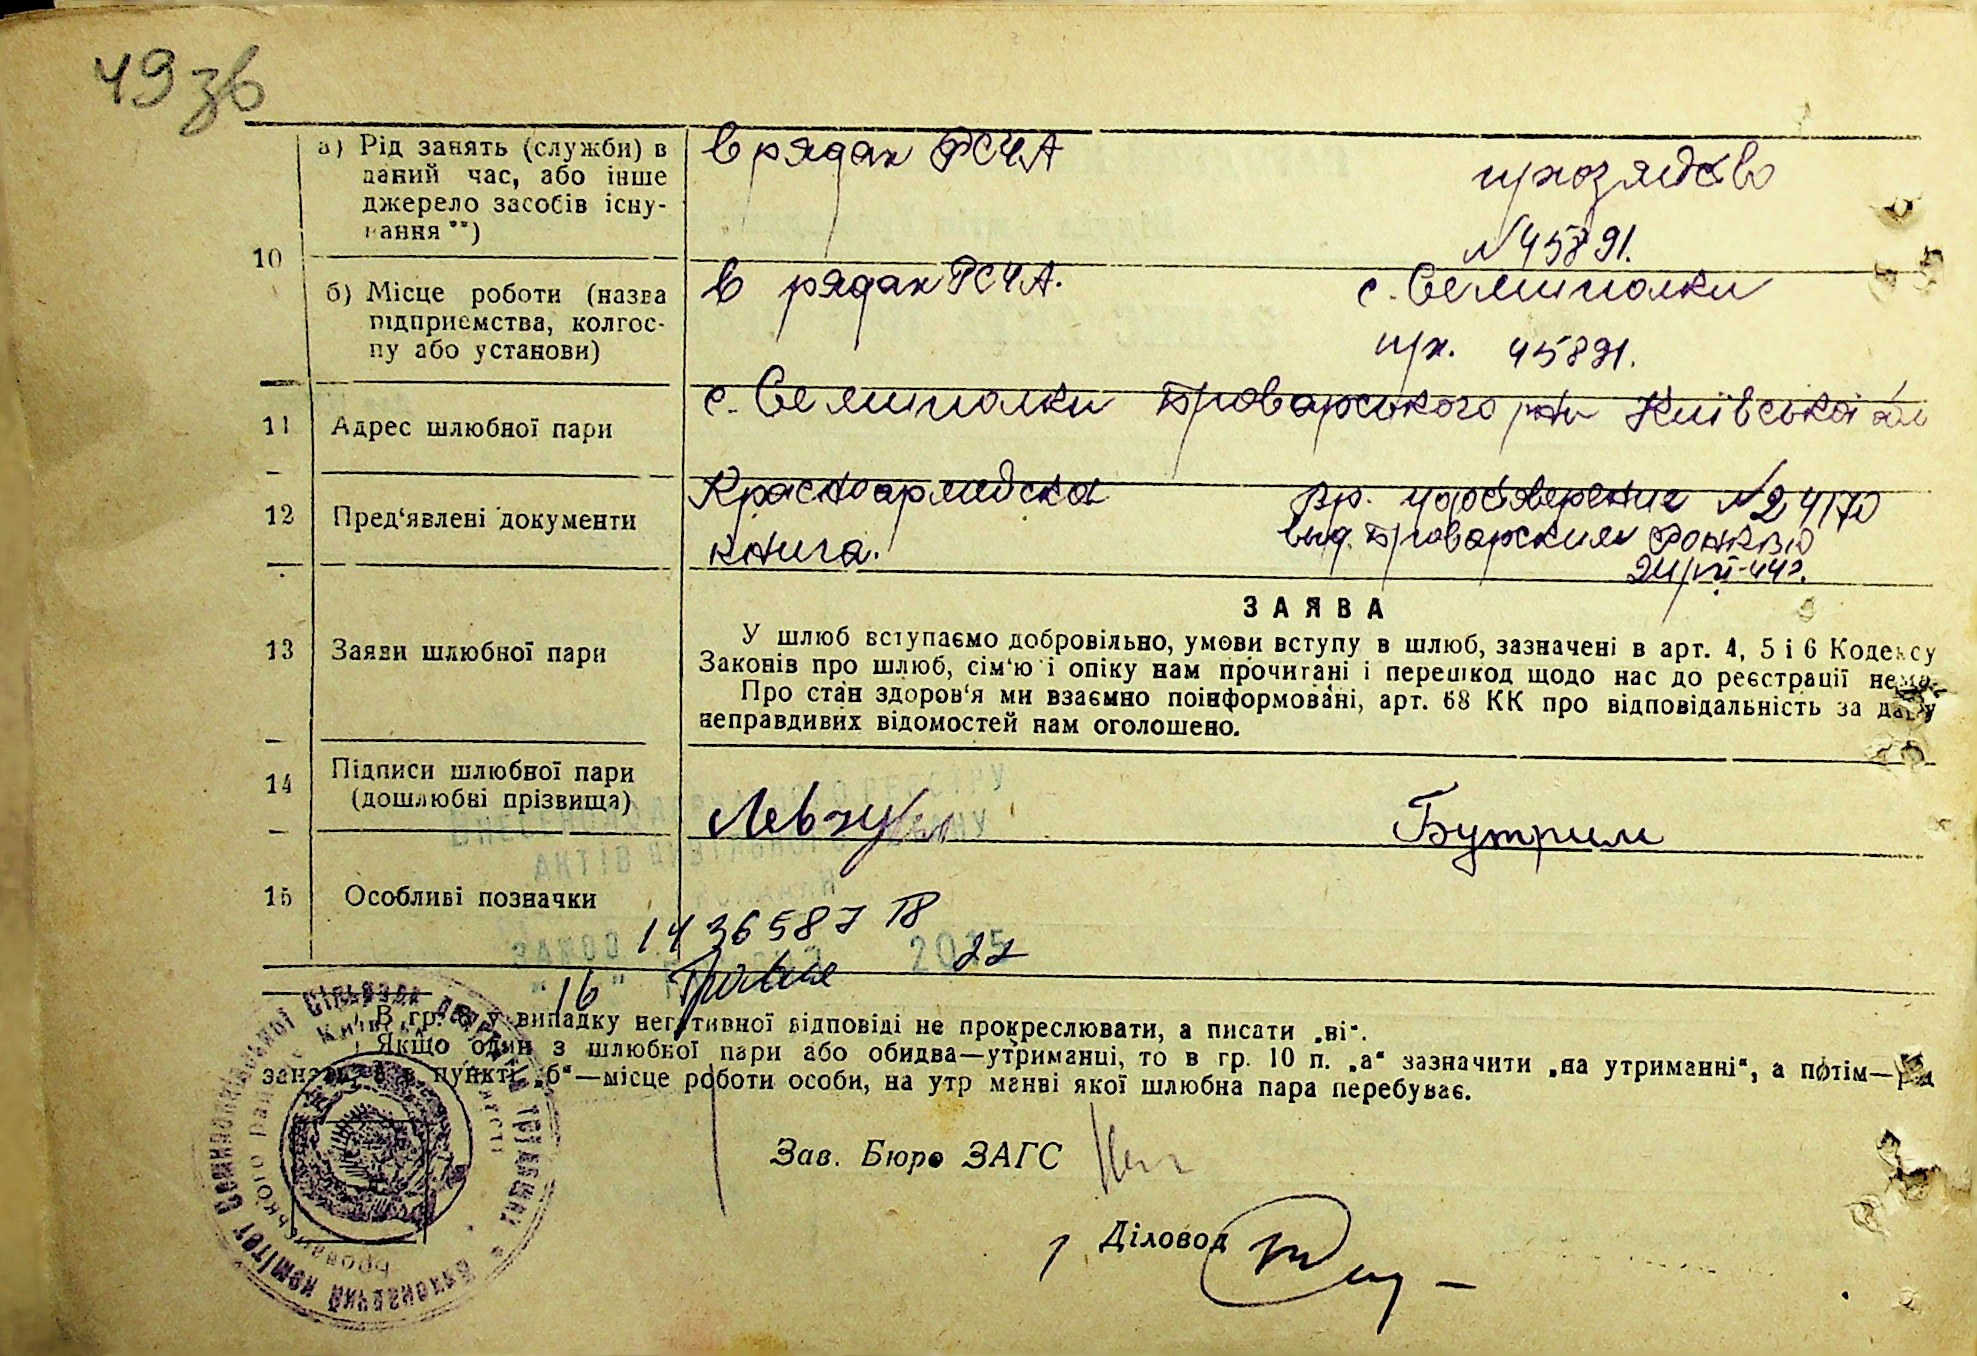 49 зв
а) Рід занять (служби) в
даний час, або інше
джерело засобів існу-
вання **)
в рядах РСЧА
№ 45891.
10
б) Місце роботи (назва
підприємства, колгос-
пу або установи)
в рядах РСЧА.
с. Семиполки
п/х. 45891.
11 Адрес шлюбної пари
с. Семиполки Броварського р-ну Київської обл
12 Пред'явлені документи
Красноармейска
книга.
Вр. удостверение № 24170
выд. Броварским РОНКВД
24/VII-44 г.
13 Заяви шлюбної пари
ЗАЯВА
У шлюб вступаємо добровільно, умови вступу в шлюб, зазначені в арт. 4, 5 і 6 Кодексу
Законів про шлюб, сім'ю і опіку нам прочитані і перешкод щодо нас до реєстрації нема.
Про стан здоров'я ми взаємно поінформовані, арт. 68 КК про відповідальність за дачу
неправдивих відомостей нам оголошено.
14 Підписи шлюбної пари
(дошлюбні прізвища)
Левчук
Бутрим
ВНЕСЕНО ДО ДЕРЖАВНОГО РЕЄСТРУ
АКТІВ ЦИВІЛЬНОГО СТАНУ
ГРОМАДЯН
15 Особливі позначки
1436587 18
ЗА № 00
16 травня 2015 22
В гр. у випадку негативної відповіді не прокреслювати, а писати „ні".
Якщо один з шлюбної пари або обидва—утриманці, то в гр. 10 п. „а" зазначити „на утриманні", а потім— рід
занять, а в пункті „б"—місце роботи особи, на утриманні якої шлюбна пара перебуває.
Зав. Бюро ЗАГС
Діловод
Виконавчий комітет Семиполківської сільради депутатів трудящих
Броварського району Київської області